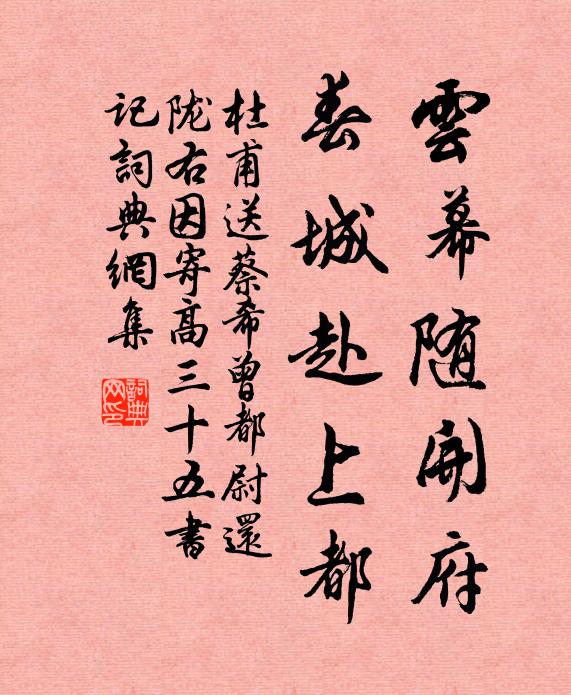 雲幕随開府
春城赴上都
杜甫送蔡希曾都尉還
陇右因寄高三十五書
记詞典網集
詞典
网印